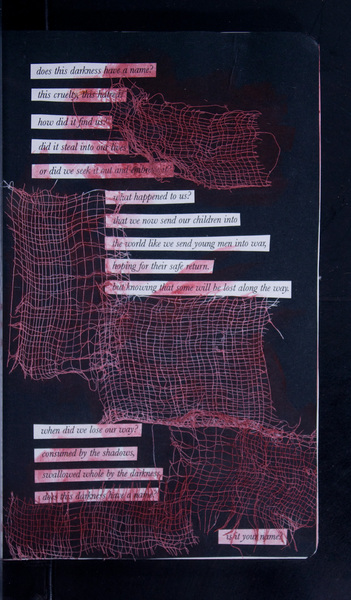 does this darkness have a name?
this cruelty, this hatred?
how did it find us?
did it steal into our lives
or did we seek it out and embrace it?
what happened to us?
that we now send our children into
the world like we send young men into war,
hoping for their safe return,
but knowing that some will be lost along the way.
when did we lose our way?
consumed by the shadows,
swallowed whole by the darkness,
does this darkness have a name?
is it your name?